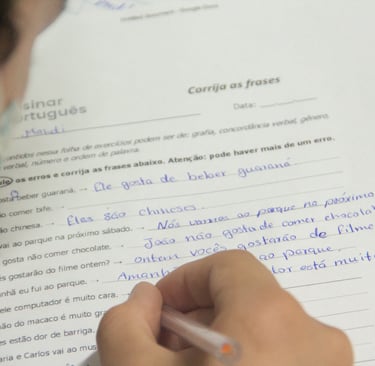 Untitled document - Google Docs
sinar
rtuguês
Corrija as frases
Data:
contidos nessa folha de exercícios podem ser de: grafia, concordância verbal, gênero,
verbal, número e ordem de palavra.
os erros e corrija as frases abaixo. Atenção: pode haver mais de um erro.
beber guaraná. → Ele gosta de beber guaraná.
o comer bife.
ão chinesa. → Elas são chineses.
vai ao parque na próximo sábado. → Nós vamos ao parque no próximo
gosta não comer chocolate. → João não gosta de comer chocola
s gostarão do filme ontem? → ontem vocês gostarão do filme
nhã eu fui ao parque. → Amanhã ao parque.
ele computador é muito cara. lor está muit
ão do macaco é muito gr
es estão dor de barriga.
aria e Carlos vai ao mus